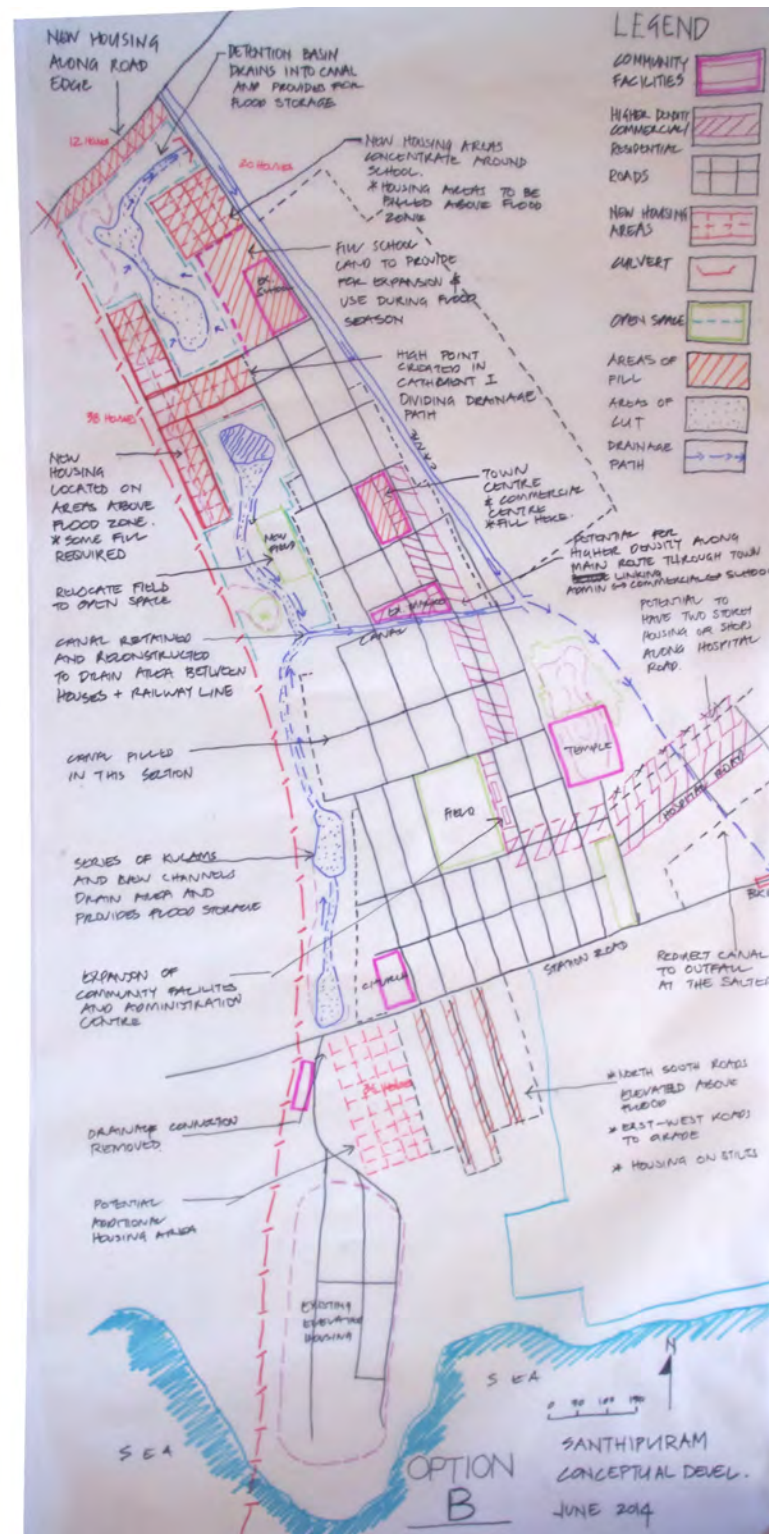 NEW HOUSING
ALONG ROAD
EDGE
DETENTION BASIN
DRAINS INTO CANAL
AND PROVIDES FOR
FLOOD STORAGE
12 HOUSES
20 HOUSES
NEW HOUSING AREAS
CONCENTRATE AROUND
SCHOOL.
* HOUSING AREAS TO BE
FILLED ABOVE FLOOD
ZONE
FILL SCHOOL
LAND TO PROVIDE
FOR EXPANSION &
USE DURING FLOOD
SEASON
EX.
SCHOOL
HIGH POINT
CREATED IN
CATCHMENT I
DIVIDING DRAINAGE
PATH
38 HOUSES
NEW
HOUSING
LOCATED ON
AREAS ABOVE
FLOOD ZONE.
* SOME FILL
REQUIRED
TOWN
CENTRE
& COMMERCIAL
CENTRE
* FILL HERE.
NEW
FIELD
RELOCATE FIELD
TO OPEN SPACE
POTENTIAL FOR
HIGHER DENSITY ALONG
MAIN ROUTE THROUGH TOWN
LINKING
ADMIN COMMERCIAL SCHOOL
POTENTIAL TO
HAVE TWO STOREY
HOUSING OR SHOPS
ALONG HOSPITAL
ROAD.
EX MARKET
CANAL
CANAL
CANAL RETAINED
AND RECONSTRUCTED
TO DRAIN AREA BETWEEN
HOUSES + RAILWAY LINE
CANAL FILLED
IN THIS SECTION
TEMPLE
FIELD
HOSPITAL ROAD
SERIES OF KULAMS
AND BROW CHANNELS
DRAIN AREA AND
PROVIDES FLOOD STORAGE
EXPANSION OF
COMMUNITY FACILITIES
AND ADMINISTRATION
CENTRE
CHURCH
STATION ROAD
REDIRECT CANAL
TO OUTFALL
AT THE SALTER
DRAINAGE CONNECTION
REMOVED
36 HOUSES
* NORTH SOUTH ROADS
ELEVATED ABOVE
FLOOD
* EAST-WEST ROADS
TO GRADE
* HOUSING ON STILTS
POTENTIAL
ADDITIONAL
HOUSING AREA
EXISTING
ELEVATED
HOUSING
SEA
SEA
N
OPTION
B
SANTHIPURAM
CONCEPTUAL DEVEL.
JUNE 2014
LEGEND
COMMUNITY
FACILITIES
HIGHER DENSITY
COMMERCIAL/
RESIDENTIAL
ROADS
NEW HOUSING
AREAS
CULVERT
OPEN SPACE
AREAS OF
FILL
AREAS OF
CUT
DRAINAGE
PATH